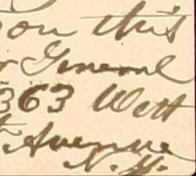 on this
r General
363 West
Avenue
N.Y.